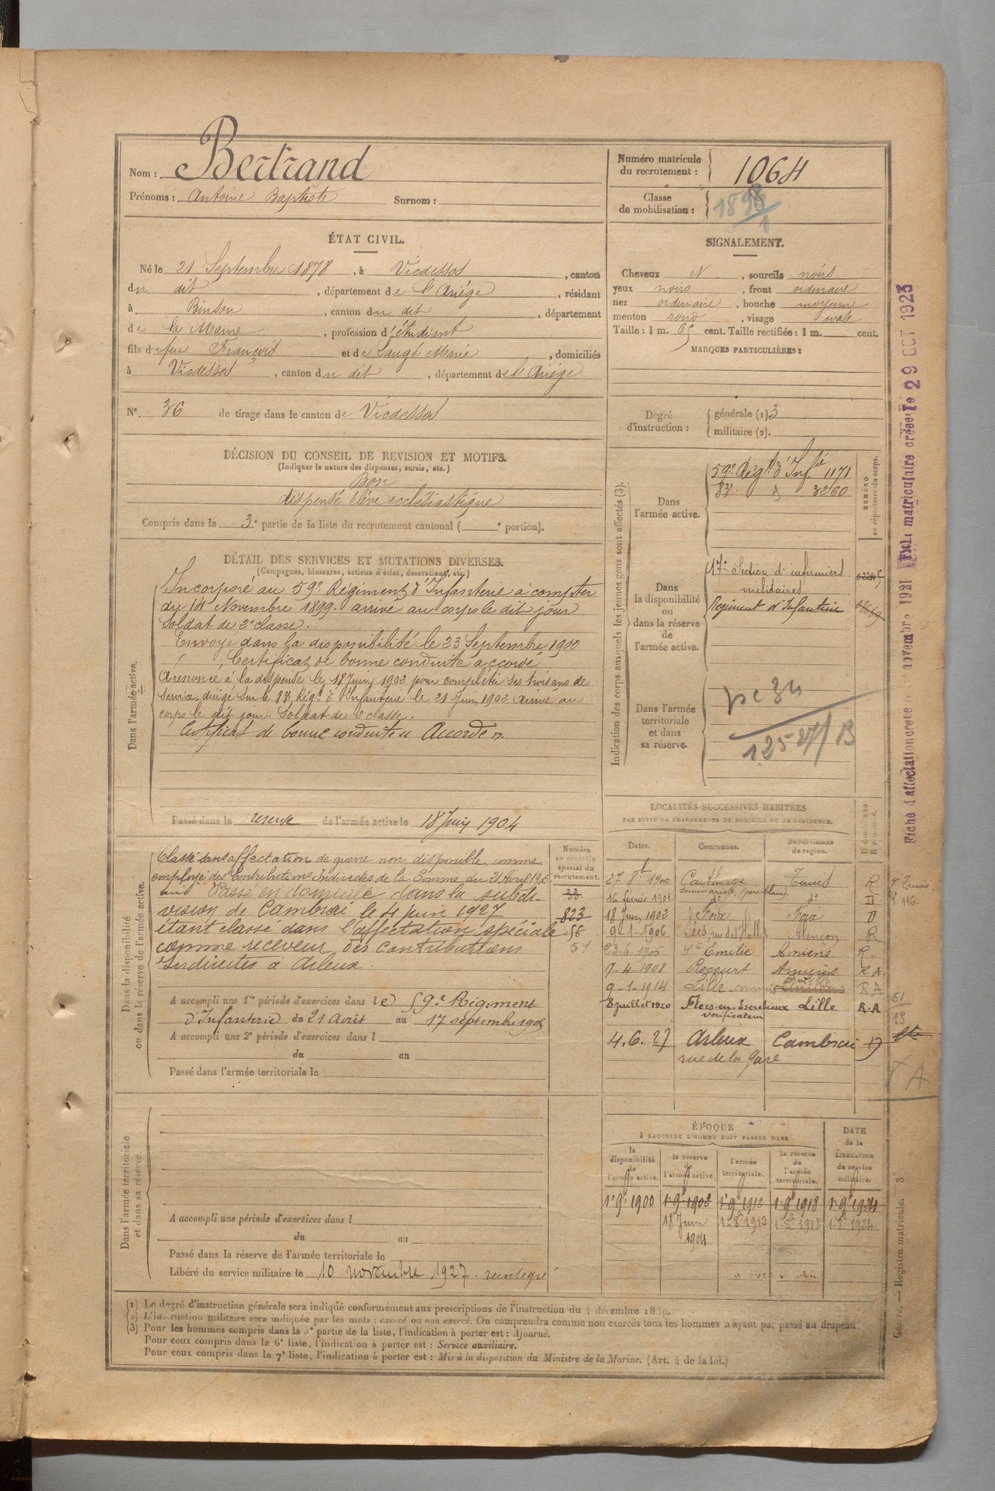 Nom : Bertrand
Prénoms : Antoine Baptiste Surnom :
Numéro matricule du recrutement : 1064
Classe de mobilisation :
ÉTAT CIVIL.
Né le 21 Septembre 1878, à Vicdessos, canton
du dit, département de l'Ariège, résidant
à, canton du dit, département
de la Marne, profession d'étudiant
fils de feu François et de Laugé Marie, domiciliés
à Vicdessos, canton du dit, département de l'Ariège
N° 36 de tirage dans le canton de Vicdessos
DÉCISION DU CONSEIL DE REVISION ET MOTIFS.
(Indiquer la nature des dispenses, sursis, etc.)
Bon
dispensé élève ecclésiastique
Compris dans la 3e partie de la liste du recrutement cantonal ( e portion).
DÉTAIL DES SERVICES ET MUTATIONS DIVERSES.
(Campagnes, blessures, actions d'éclat, décorations, etc.)
Dans l'armée active.
Incorporé au 59e Régiment d'Infanterie à compter
du 14 Novembre 1899 arrivé au corps le dit jour
Soldat de 2e classe.
Envoyé dans la disponibilité le 23 Septembre 1900
Certificat de bonne conduite accordé
A renoncé à la dispense le 18 Juin 1903 pour compléter ses trois ans de
service, dirigé sur le 83e Régt d'Infanterie le 21 Juin 1903 Arrivé au
corps le dit jour Soldat de 2e classe.
Certificat de bonne conduite Accordé
Passé dans la réserve de l'armée active le 18 Juin 1904
Dans la disponibilité ou dans la réserve de l'armée active.
Classé sans affectation de guerre non disponible comme
employé des Contributions Indirectes de la Somme du 21 Avril 1906
Passé en domicile dans la subdi-
vision de Cambrai le 4 juin 1927
étant classé dans l'affectation spéciale
comme receveur des contributions
Indirectes à Arleux.
Numéro au contrôle spécial du recrutement.
823
56
A accompli une 1re période d'exercices dans le 59e Régiment
d'Infanterie du 21 Août au 17 septembre 1905
A accompli une 2e période d'exercices dans l
du au
Passé dans l'armée territoriale le
Dans l'armée territoriale et dans sa réserve.
A accompli une période d'exercices dans l
du au
Passé dans la réserve de l'armée territoriale le
Libéré du service militaire le 10 novembre 1927
SIGNALEMENT.
Cheveux N, sourcils noirs
yeux noirs, front ordinaire
nez ordinaire, bouche moyenne
menton rond, visage ovale
Taille : 1 m. 65 cent. Taille rectifiée : 1 m. cent.
MARQUES PARTICULIÈRES :
Degré d'instruction : générale (1) 3
militaire (2).
Indication des corps auxquels les jeunes gens sont affectés (3).
NUMÉRO au répertoire du corps.
Dans l'armée active.
59e Régt d'Infie 1171
83e d° 3260
Dans la disponibilité ou dans la réserve de l'armée active.
17e Section d'infirmiers
militaires
Régiment d'Infanterie
Dans l'armée territoriale et dans sa réserve.
LOCALITÉS SUCCESSIVES HABITÉES
PAR SUITE DE CHANGEMENTS DE DOMICILE OU DE RÉSIDENCE.
Dates. Communes. Subdivisions de région.
27 8bre 1900 Carthage Tunis R
16 février 1901 D
18 Juin 1902 Foix Foix D
9-1-1906 Alençon R
23-4-1906 Ste Emilie Amiens R
17-4-1908 Amiens R.A
9-1-1914 Lille R A
8 juillet 1920 Flers-en-Escrebieux Lille R.A
vérificateur
4.6.27 Arleux Cambrai D
rue de la Gare
ÉPOQUE
À LAQUELLE L'HOMME DOIT PASSER DANS
DATE de la LIBÉRATION du service militaire.
la disponibilité de l'armée active. la réserve de l'armée active. l'armée territoriale. la réserve de l'armée territoriale.
1er 9bre 1900 1er 9bre 1902 1er 9bre 1912 1er 9bre 1918 1er 9bre 1924
18 Juin 1904
Fiche matriculaire créée le 29 OCT 1923
Fiche d'affectation créée le novembre 1921
(1) Le degré d'instruction générale sera indiqué conformément aux prescriptions de l'instruction du 4 décembre 1889.
(2) L'instruction militaire sera indiquée par les mots : exercé ou non exercé. On comprendra comme non exercés tous les hommes n'ayant pas passé au drapeau
(3) Pour les hommes compris dans la 5e partie de la liste, l'indication à porter est : Ajourné.
Pour ceux compris dans la 6e liste, l'indication à porter est : Service auxiliaire.
Pour ceux compris dans la 7e liste, l'indication à porter est : Mis à la disposition du Ministre de la Marine. (Art. 4 de la loi.)